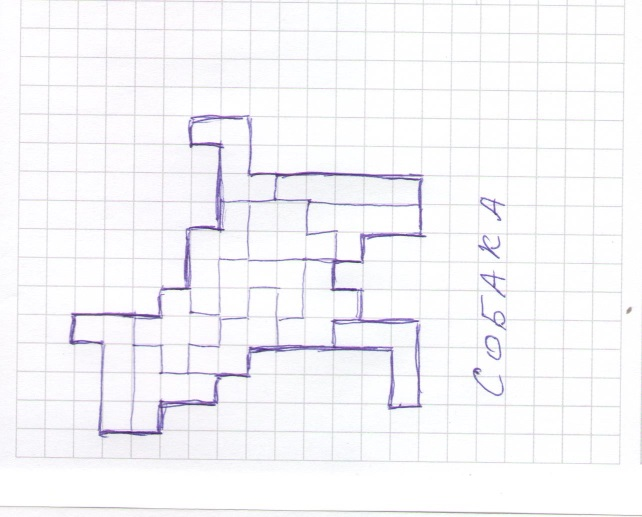 СОБАКА